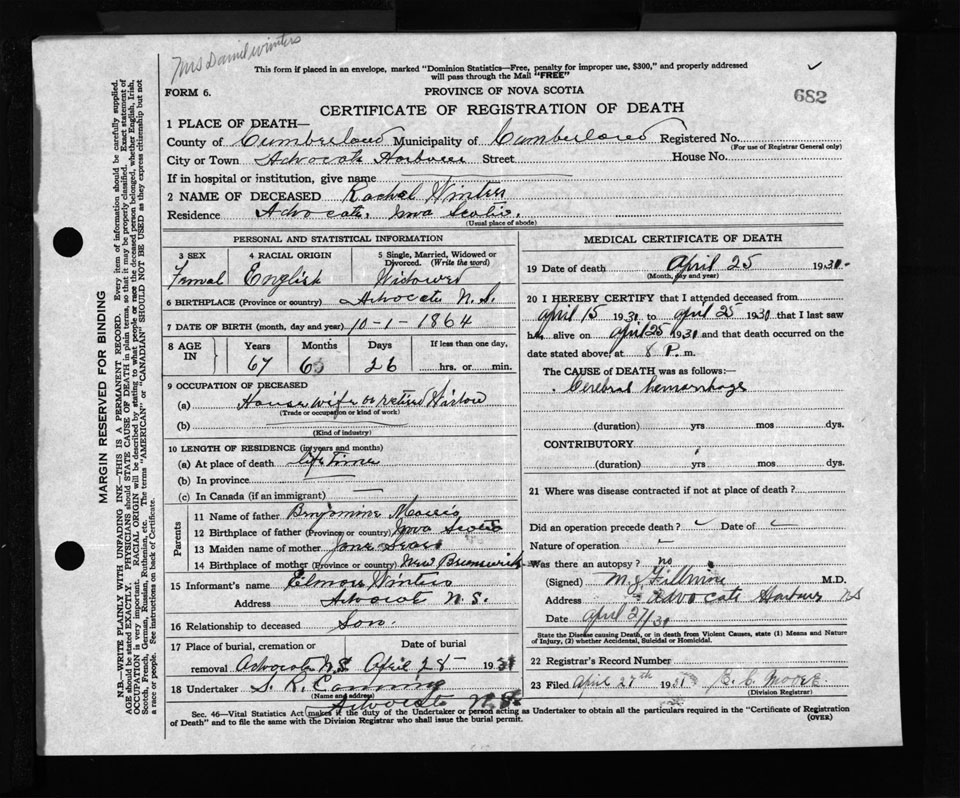 Mrs Daniel Winters
This form if placed in an envelope, marked "Dominion Statistics—Free, penalty for improper use, $300," and properly addressed
will pass through the Mail "FREE"
FORM 6.
PROVINCE OF NOVA SCOTIA
682
CERTIFICATE OF REGISTRATION OF DEATH
1 PLACE OF DEATH—
County of Cumberland Municipality of Cumberland Registered No.
(For use of Registrar General only)
City or Town Advocate Harbour Street House No.
If in hospital or institution, give name
2 NAME OF DECEASED Rachel Winters
Residence Advocate, Nova Scotia.
(Usual place of abode)
PERSONAL AND STATISTICAL INFORMATION
3 SEX 4 RACIAL ORIGIN 5 Single, Married, Widowed or Divorced. (Write the word)
Femal English Widowed
6 BIRTHPLACE (Province or country) Advocate N.S.
7 DATE OF BIRTH (month, day and year) 10-1-1864
8 AGE IN Years Months Days If less than one day,
67 6 26 hrs. or min.
9 OCCUPATION OF DECEASED
(a) House wife or retired
(Trade or occupation or kind of work)
(b)
(Kind of industry)
10 LENGTH OF RESIDENCE (in years and months)
(a) At place of death life time
(b) In province
(c) In Canada (if an immigrant)
Parents
11 Name of father Benjamine Morris
12 Birthplace of father (Province or country) Nova Scotia
13 Maiden name of mother Jane
14 Birthplace of mother (Province or country) New Brunswick
15 Informant's name Elmore Winters
Address Advocate N.S.
16 Relationship to deceased Son.
17 Place of burial, cremation or Date of burial
removal Advocate N.S. April 28- 193
18 Undertaker S. R.
(Name and address)
Advocate N.S.
MEDICAL CERTIFICATE OF DEATH
19 Date of death April 25 1930-
(Month, day and year)
20 I HEREBY CERTIFY that I attended deceased from
april 15 1930 to april 25 1930 that I last saw
h alive on april 25 1930 and that death occurred on
date stated above, at 8 P. m.
The CAUSE of DEATH was as follows:
Cerebral hemorrhage
(duration) yrs mos dys.
CONTRIBUTORY
(duration) yrs mos dys.
21 Where was disease contracted if not at place of death?
Did an operation precede death? Date of
Nature of operation
Was there an autopsy? no
(Signed) M. J. Fillmore M.D.
Address Advocate Harbour NS
Date april 27/30
State the Disease causing Death, or in death from Violent Causes, state (1) Means and Nature
of Injury, (2) whether Accidental, Suicidal or Homicidal.
22 Registrar's Record Number
23 Filed April 28th 1931
(Division Registrar)
Sec. 46—Vital Statistics Act makes it the duty of the Undertaker or person acting as Undertaker to obtain all the particulars required in the "Certificate of Registration
of Death" and to file the same with the Division Registrar who shall issue the burial permit.
(OVER)
MARGIN RESERVED FOR BINDING
N.B.—WRITE PLAINLY WITH UNFADING INK—THIS IS A PERMANENT RECORD. Every item of information should be carefully supplied.
AGE should be stated EXACTLY. PHYSICIANS should STATE CAUSE OF DEATH in plain terms, so that it may be properly classified. Exact statement of
OCCUPATION is very important. RACIAL ORIGIN will be described by stating to what people or race the deceased person belonged, whether English, Irish,
Scotch, French, German, Russian, Ruthenian, etc. The terms "AMERICAN" or "CANADIAN" SHOULD NOT BE USED as they express citizenship but not
a race or people. See instructions on back of Certificate.